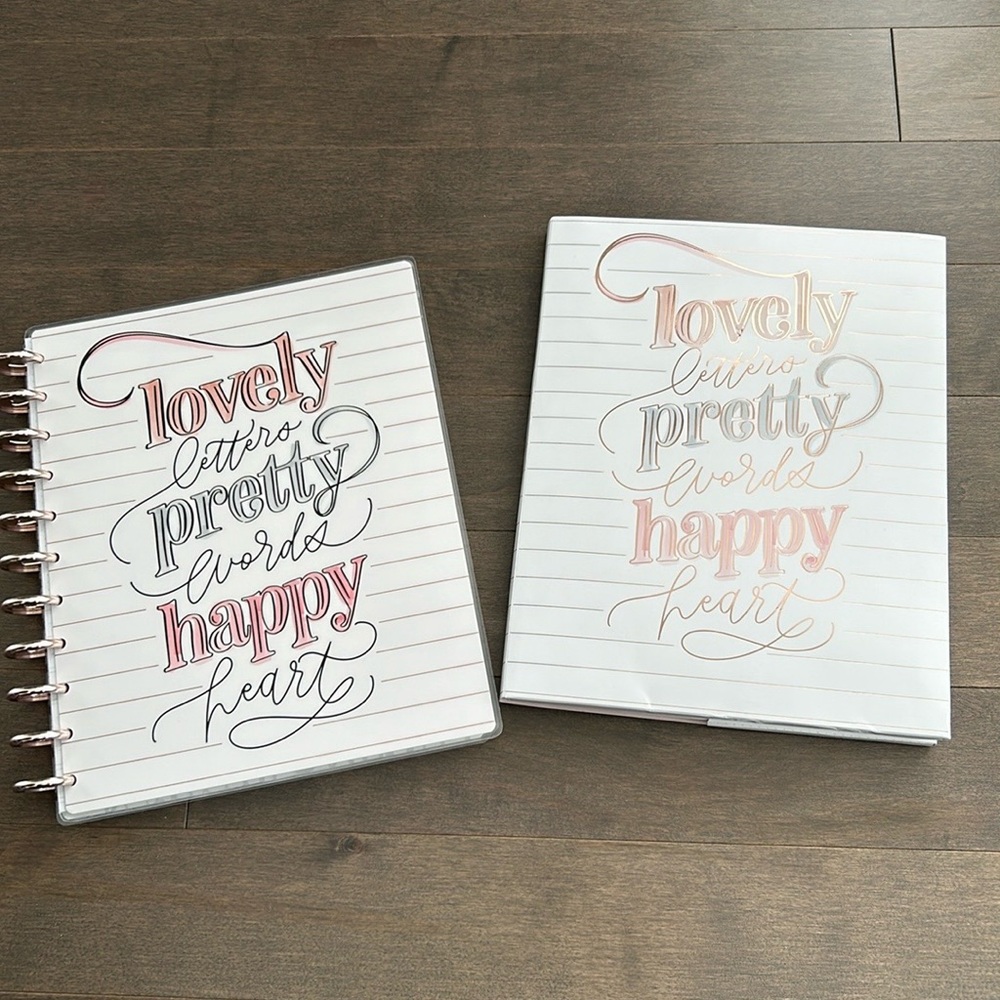 lovely
letters
pretty
words
happy
heart
lovely
letters
pretty
words
happy
heart